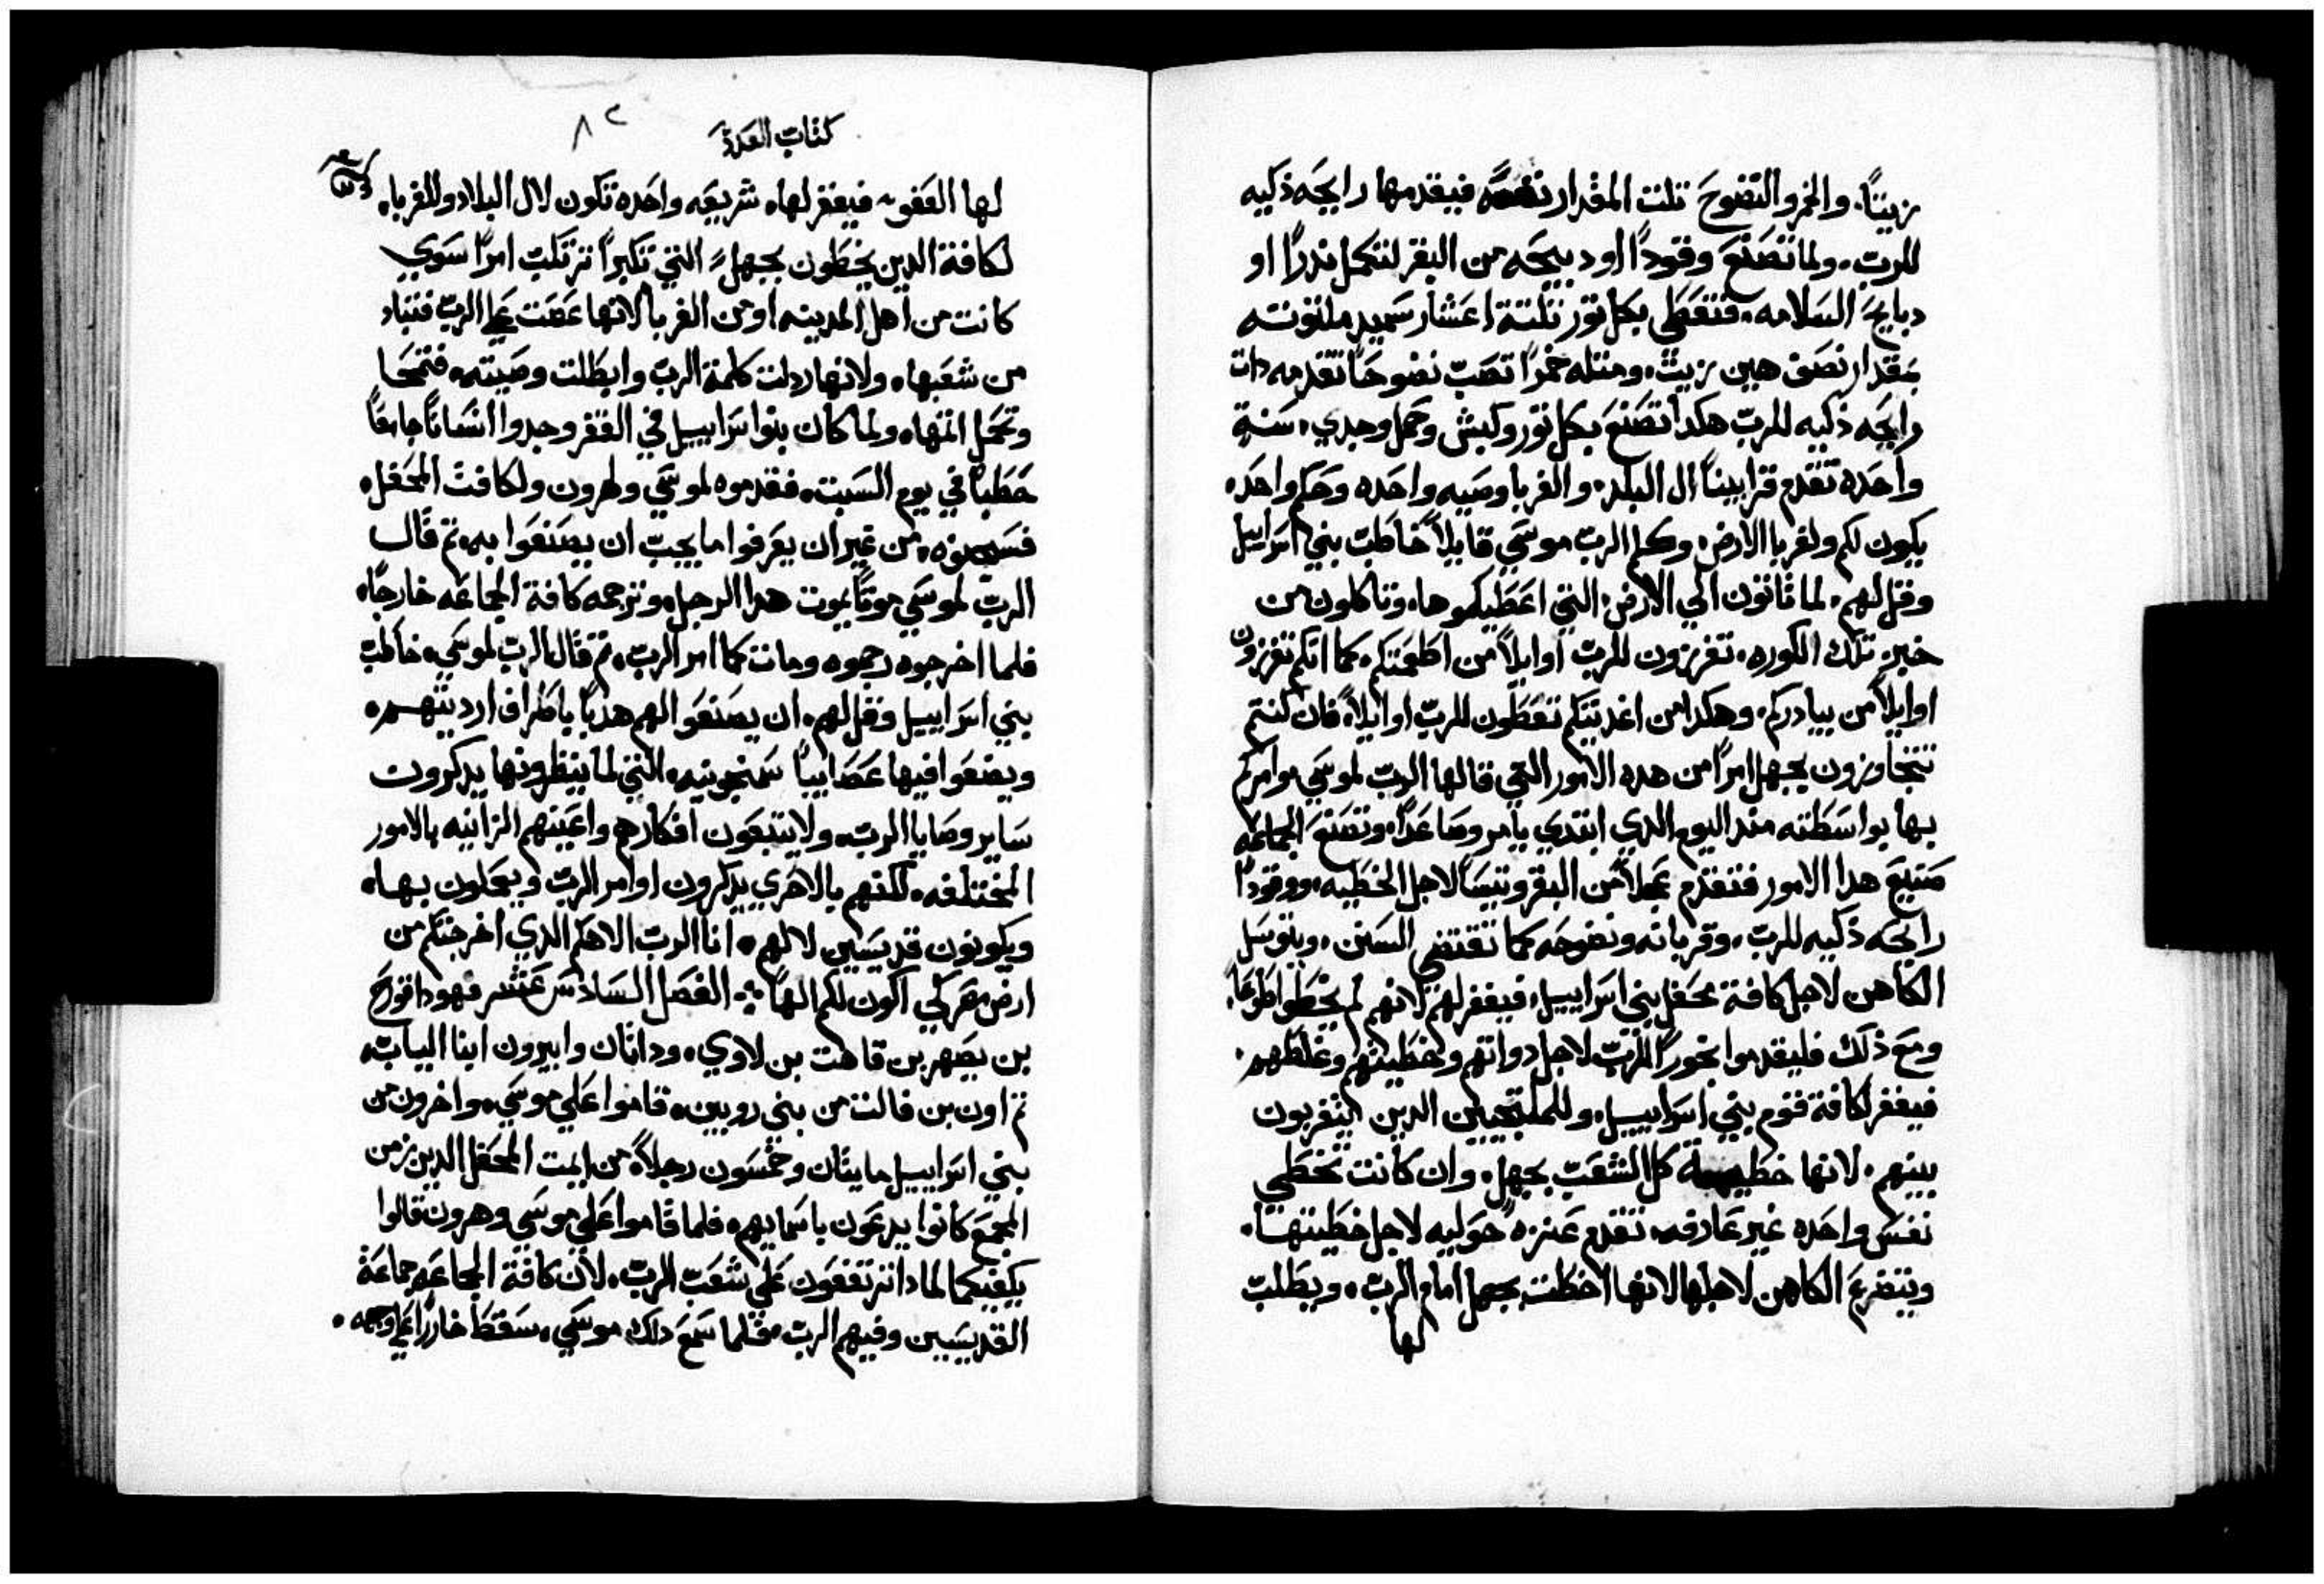 زيتاً. والخمر والنضوح تلت المقدار نفسه فيقدمها رايحه ذكيه
للرب. ولما تصنع وقوداً او دبيحه من البقر لتكمل ندراً او
دبايح السلامه. فتعطي بكل تور تلتة اعشار سميد ملتوته
بمقدار نصف هين زيت. ومتله خمراً تصب نضوحاً تقدمه دات
رايحه ذكيه للرب هكدا تصنع بكل تور وكبش وحمل وجدي. سنة
واحده تقدم قرابيناً ال البلد. والغربا وصيه واحده وحكم واحد.
يكون لكم ولغربا الارض. وكلم الرب موسي قايلاً خاطب بني اسراييل
وقل لهم. لما تاتون الي الارض التي اعطيكموها. وتاكلون من
خبز تلك الكوره. تفرزون للرب اوايلاً من اطعمتكم. كما انكم تفرزون
اوايلاً من بيادركم. وهكدا من اغديتكم تعطون للرب اوايلاً. فان كنتم
تتجاوزون بجهل امراً من هده الامور التي قالها الرب لموسي. وامركم
بها بواسطته مند اليوم الدي ابتدي يامر وصاعداً. وتصنع الجماعه
جميع هدا الامور فتقدم عجلاً من البقر وتيساً لاجل الخطيه. ووقوداً
رايحه ذكيه للرب. وقربانه ونضوحه كما تقتضي السنن. ويتوسل
الكاهن لاجل كافة محفل بني اسراييل. فيغفر لهم لانهم لم يخطوا طوعاً.
ومع ذلك فليقدموا بخوراً للرب لاجل دواتهم وخطيتهم وغلطهم.
فيغفر لكافة قوم بني اسراييل. وللملتجيين الدين يتغربون
بينهم. لانها خطيه كل الشعب بجهل. وان كانت تخطي
نفس واحده غير عارفه. تقدم عنزه حوليه لاجل خطيتها.
ويتضرع الكاهن لاجلها لانها اخطت بجهل امام الرب. ويطلب
لها
كتاب العدد
٨٢
لها العفو. فيغفر لها. شريعه واحده تكون لال البلاد وللغربا.
لكافة الدين يخطون بجهل. التي تكبراً ترتكب امراً سوي
كانت من اهل المدينه او من الغربا لانها عصت علي الرب فتباد
من شعبها. ولانها ردلت كلمة الرب وابطلت وصيته. فتمحا
وتحمل اتمها. ولما كان بنوا اسراييل في القفر وجدوا انساناً جامعاً
حطباً في يوم السبت. فقدموه لموسي ولهرون ولكافت المحفل.
فسجنوه. من غير ان يعرفوا ما يجب ان يصنعوا به. تم قال
الرب لموسي موتاً يموت هدا الرجل. وترجمه كافة الجماعه خارجاً.
فلما اخرجوه رجموه ومات كما امر الرب. تم قال الرب لموسي. خاطب
بني اسراييل وقل لهم. ان يصنعوا لهم هدباً باطراف ارديتهم.
ويضعوا فيها عصايباً سمنجونيه. التي لما ينظرونها يدكرون
ساير وصايا الرب. ولا يتبعون افكارهم واعينهم الزانيه بالامور
المختلفه. لكنهم بالاحري يدكرون اوامر الرب ويعملون بها.
ويكونون قديسين لالهم. انا الرب الاهكم الدي اخرجتكم من
ارض مصر لكي اكون لكم الهاً. الفصل السادس عشر فهودا قورح
بن يصهر بن قاهت بن لاوي. وداتان وابيرون ابنا الياب.
تم اون بن فالت من بني روبين. قاموا علي موسي. واخرون من
بني اسراييل مايتان وخمسون رجلاً. من ايمت المحفل الدين زمن
المجمع كانوا يدعون باسمايهم. فلما قاموا علي موسي وهرون قالوا
يكفيكما لمادا ترتفعون علي شعب الرب. لان كافة الجماعه جماعة
القديسين وفيهم الرب. فلما سمع دلك موسي. سقط خاراً علي وجهه.